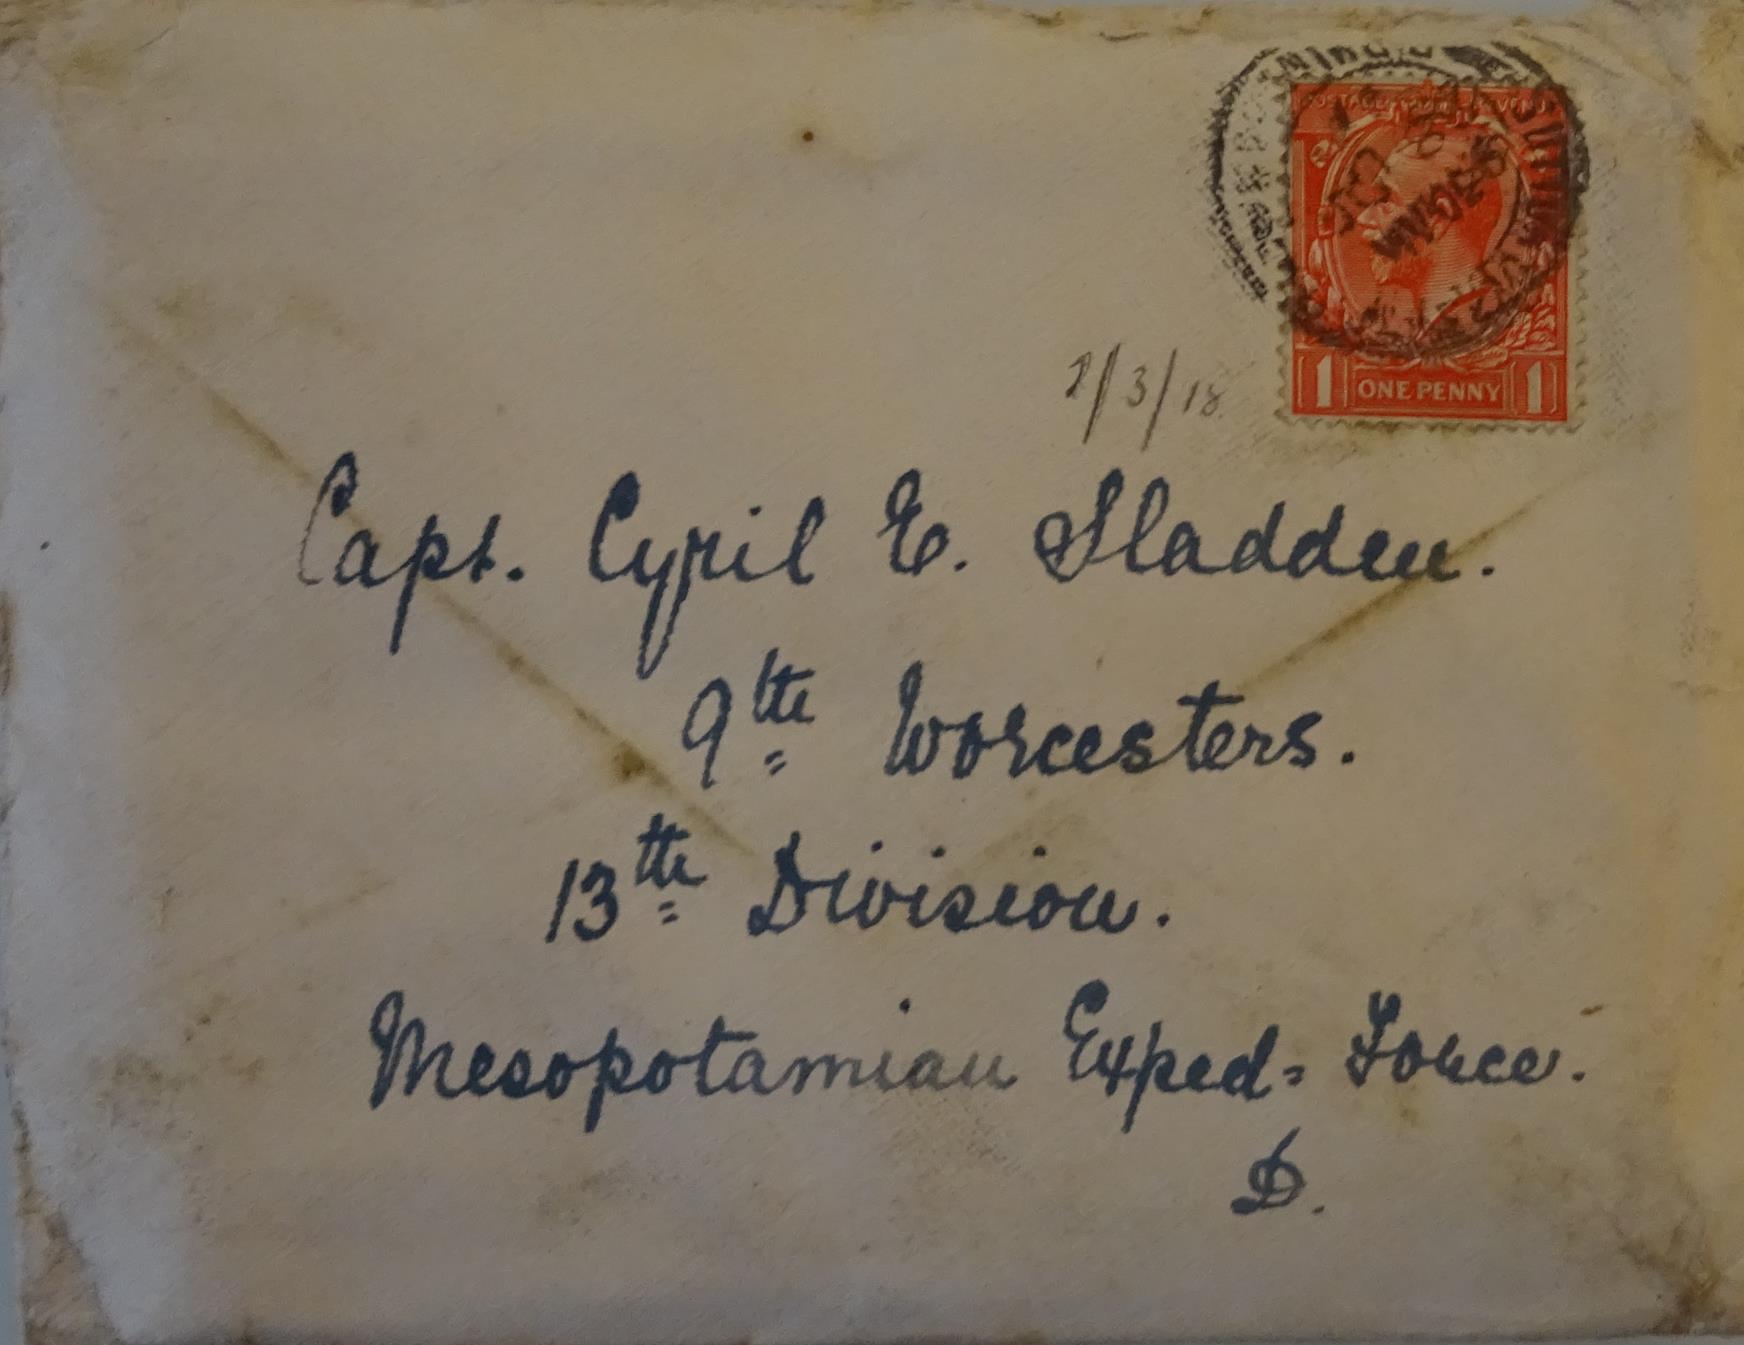 POSTAGE REVENUE
1 ONE PENNY 1
7/3/18
Capt. Cyril E. Sladden.
9th Worcesters.
13th Division.
Mesopotamian Exped= Force.
D.